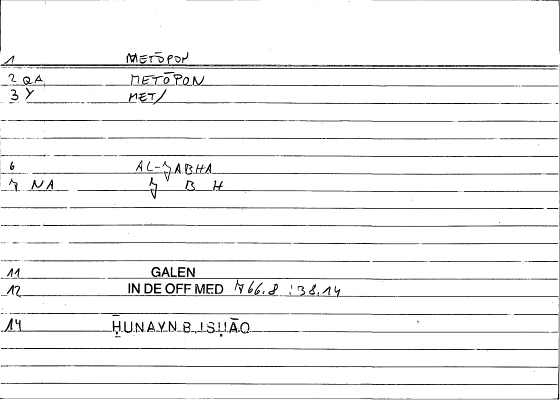 1 METŌPON
2 QA METŌPON
3 Y MET/
6 AL-ǦABHA
7 NA Ǧ B H
11 GALEN
12 IN DE OFF MED 766.8 : 38.14
14 ḤUNAYN B. ISḤĀQ